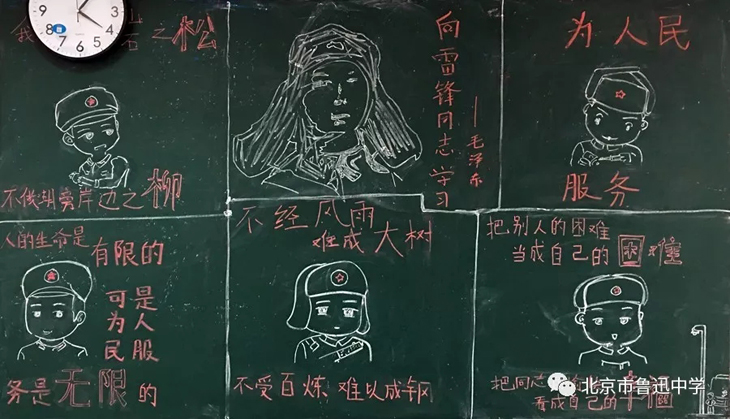 我
石之松
不做
岸边之柳
向雷锋同志学习
——毛泽东
为人民
服务
人的生命是
有限的
可是
为人
民服
务是无限的
不经风雨
难成大树
不受百炼、难以成钢
把别人的困难
当成自己的困难
把同志
看成自己的幸福
北京市鲁迅中学